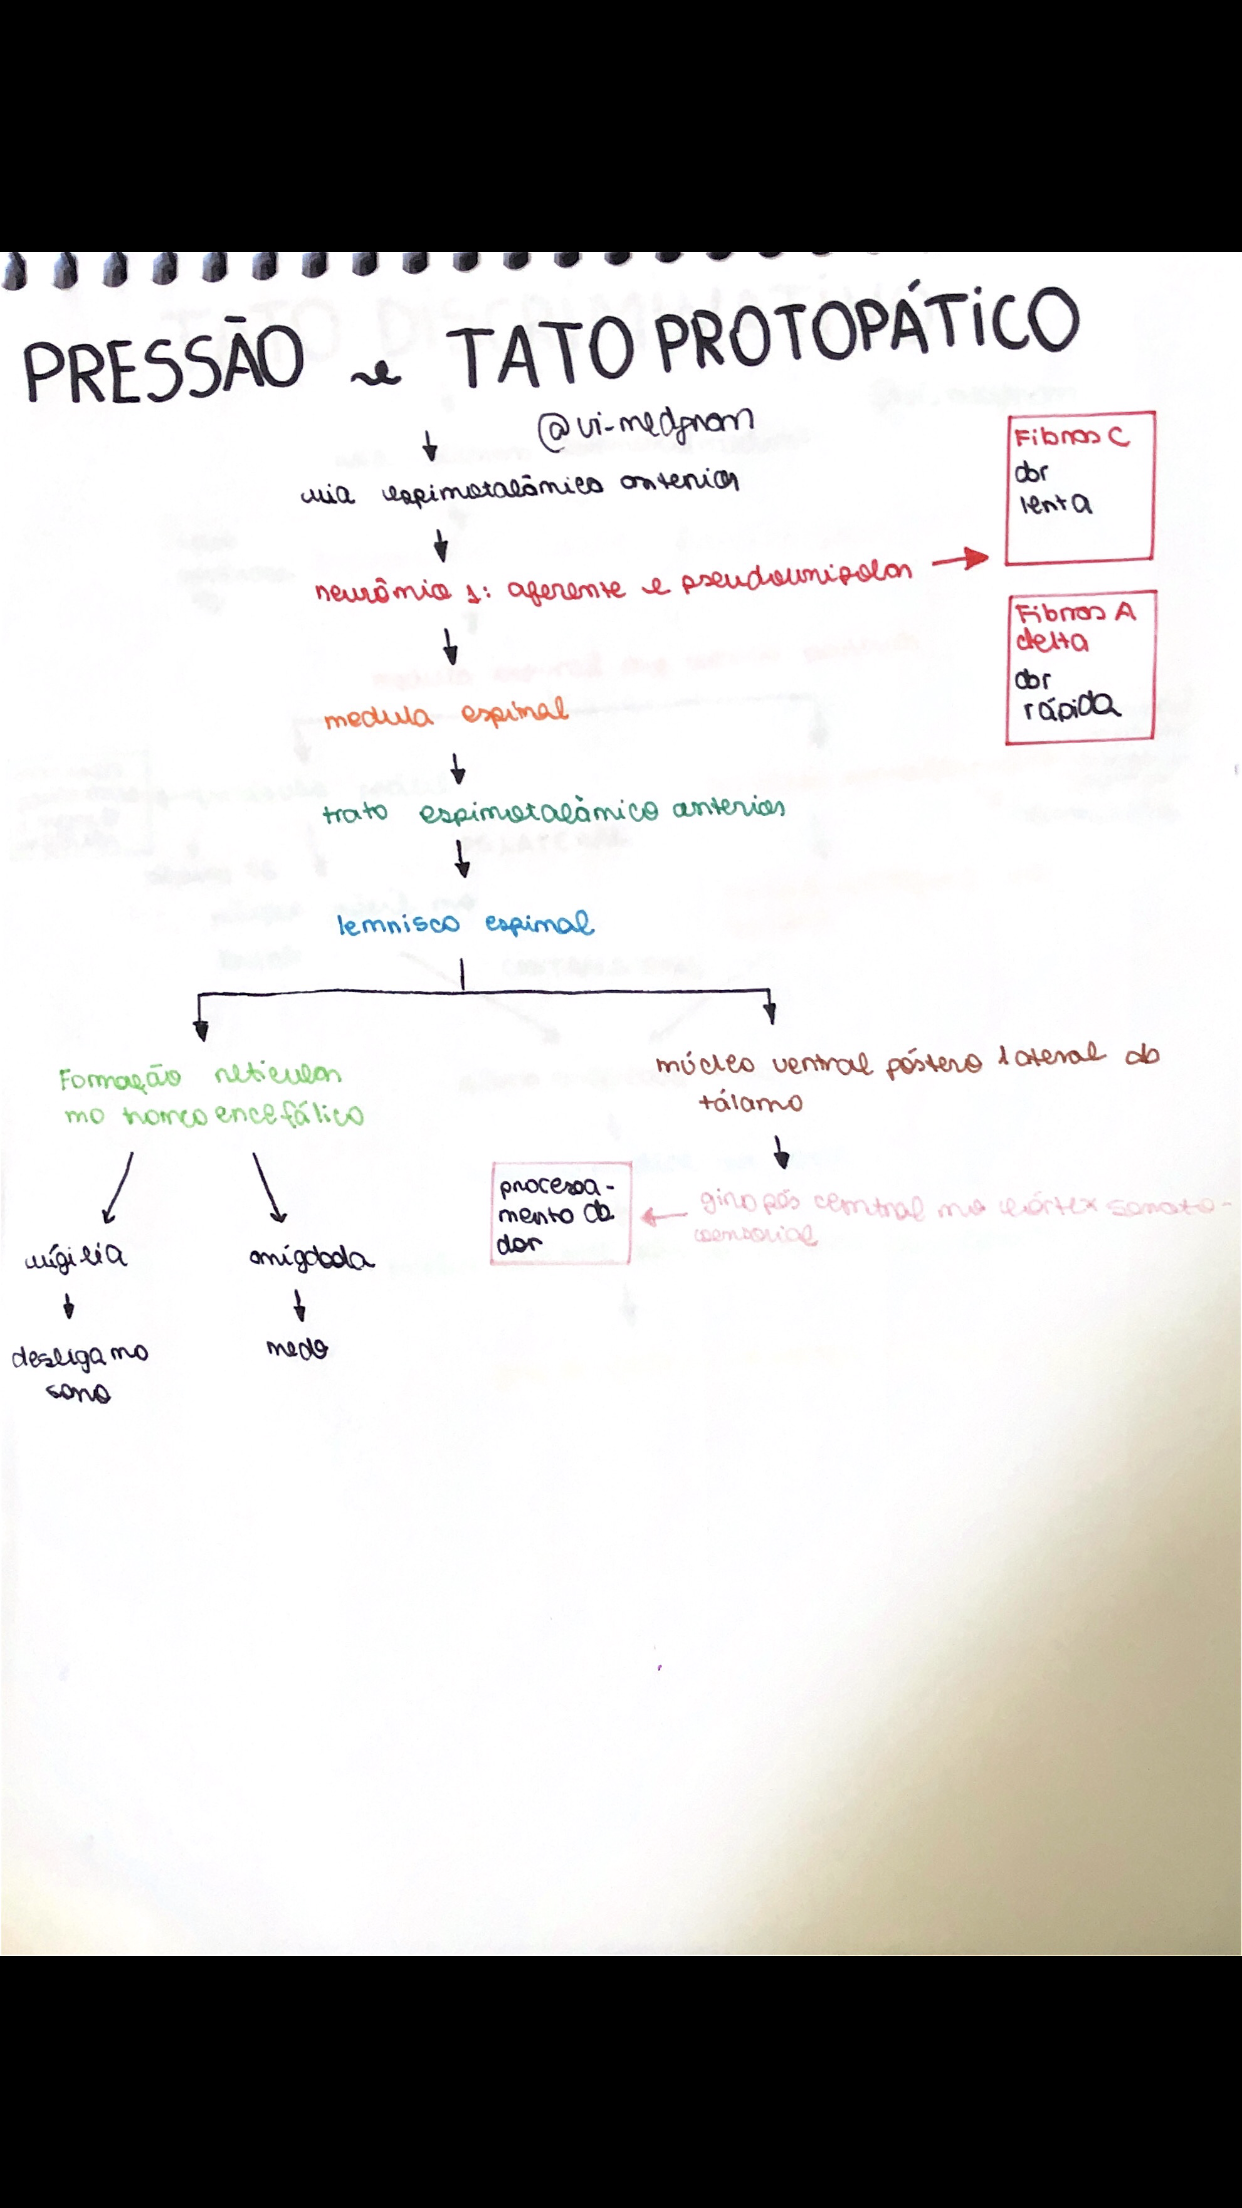 PRESSÃO e TATO PROTOPÁTICO
@vi-medgram
via espinotalâmica anterior
neurônio 1: aferente e pseudounipolar
Fibras C
dor
lenta
Fibras A
delta
dor
rápida
medula espinal
trato espinotalâmico anterior
lemnisco espinal
Formação reticular
no tronco encefálico
núcleo ventral póstero lateral do
tálamo
vigília
amígdala
desliga no
sono
medo
giro pós central no córtex somato-
sensorial
processa-
mento da
dor